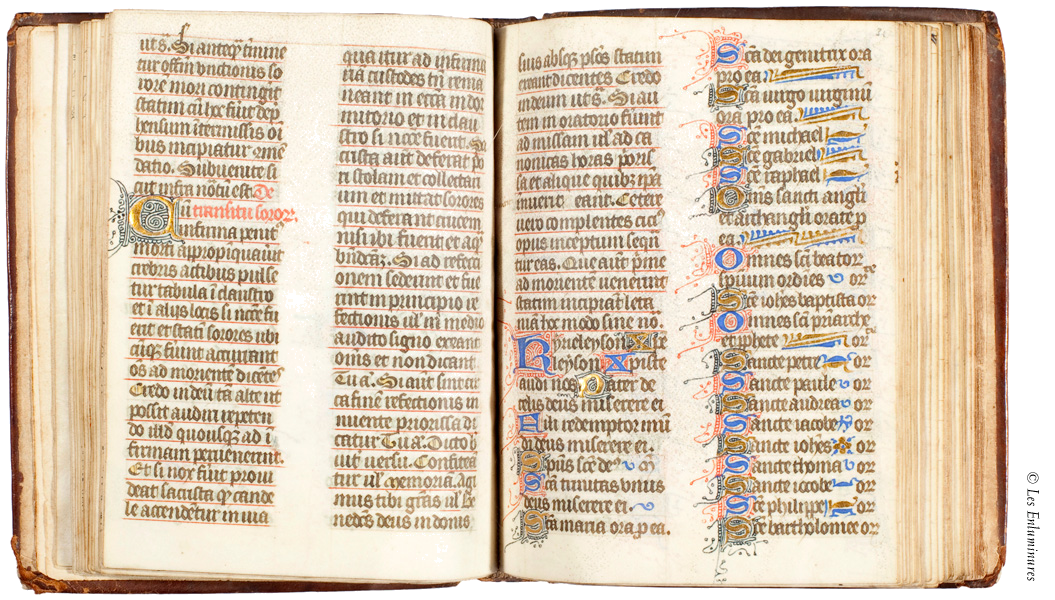 uts. Si anteq̄ t̄mine
tur offm̄ vnctionis so
rorē mori contingit
statim cū hoc fuit dep
hensum ītermissis oī
bus incipiatur
datio. Subuenite si
cut infra notū est. De
Cū transitu soror.
infirma penit
morti appropiquauit
crebris actibus pulse
tur tabula ī claustro
et ī alijs locis si necē fu
erit et statī sorores ubi
cūq̄ fuint accurrant
os ad moriente dicētes
Credo in deū tā alte ut
possit audiri repeten
do illud quousq̄ ad ī
firmam peruenerint.
Et si nox fuit proui
deat sacrista q̄ cande
le accendētur in uia
qua itur ad infirma
nā custodes tn̄ rema
neant in ecca in dor
mitorio et in clau
stro si necē fuerit. Sa
crista aut deferat
ri stolam et collectari
um et mittat sorores
qui deferant crucem
nisi ibi fuerit et aq̄
bndcā. Si ad refecti
onem sederint et fue
rint in principio re
fectionis uł in medio
audito signo exeant
om̄s et non dicant
Tu a. Si aut sint cir
ca finē refectionis in
nuente priorissa di
catur Tu a. Dicto b
uit uersu. Confitea
tur uł Memoria. Agi
mus tibi grās uł Be
nedc̄s deus in donis
suis absq̄ ps̄os statim
exeant dicentes Credo
in deum uts. Si au
tem in oratorio fūint
ad missam uł ad ca
nonicas horas poris
sa et alique quib
inuenit eant. Cetere
uero complentes
opus inceptum seqn̄
tur eas. Que aut p̄me
ad moriente uenerint
statim incipiāt leta
nia hoc modo sine no.
Kyrieleyson Xpe
leyson Xpiste
audi nos Pater de
celis deus miserere ei
Fili redemptor mū
di deus miserere ei.
Spūs scē de m
Scā trinitas vnus
deus miserere ei.
Scā maria ora p ea.
Scā dei genitrix ora
pro ea
Scā uirgo uirginū
ora pro ea.
Scē michael
Scē gabriel
Scē raphael
Om̄s sancti angli
et archangli orate p
ea.
Omnes scī beator
spirituum ordies or
Scē iohes baptista or
Omnes scī p̄riarche
et p̄phete or
Sancte petre or
Sancte paule or
Sancte andrea or
Sancte iacobe or
Sancte iohes or
Sancte thoma or
Sancte iacobe or
Scē philippe or
Scē bartholomee or
© Les Enluminures